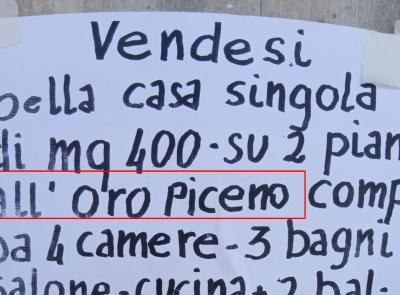 Vendesi
bella casa singola
di mq 400-su 2 pian
all' oro Piceno comp
da 4 camere-3 bagni
salone-cucina+2 bal-